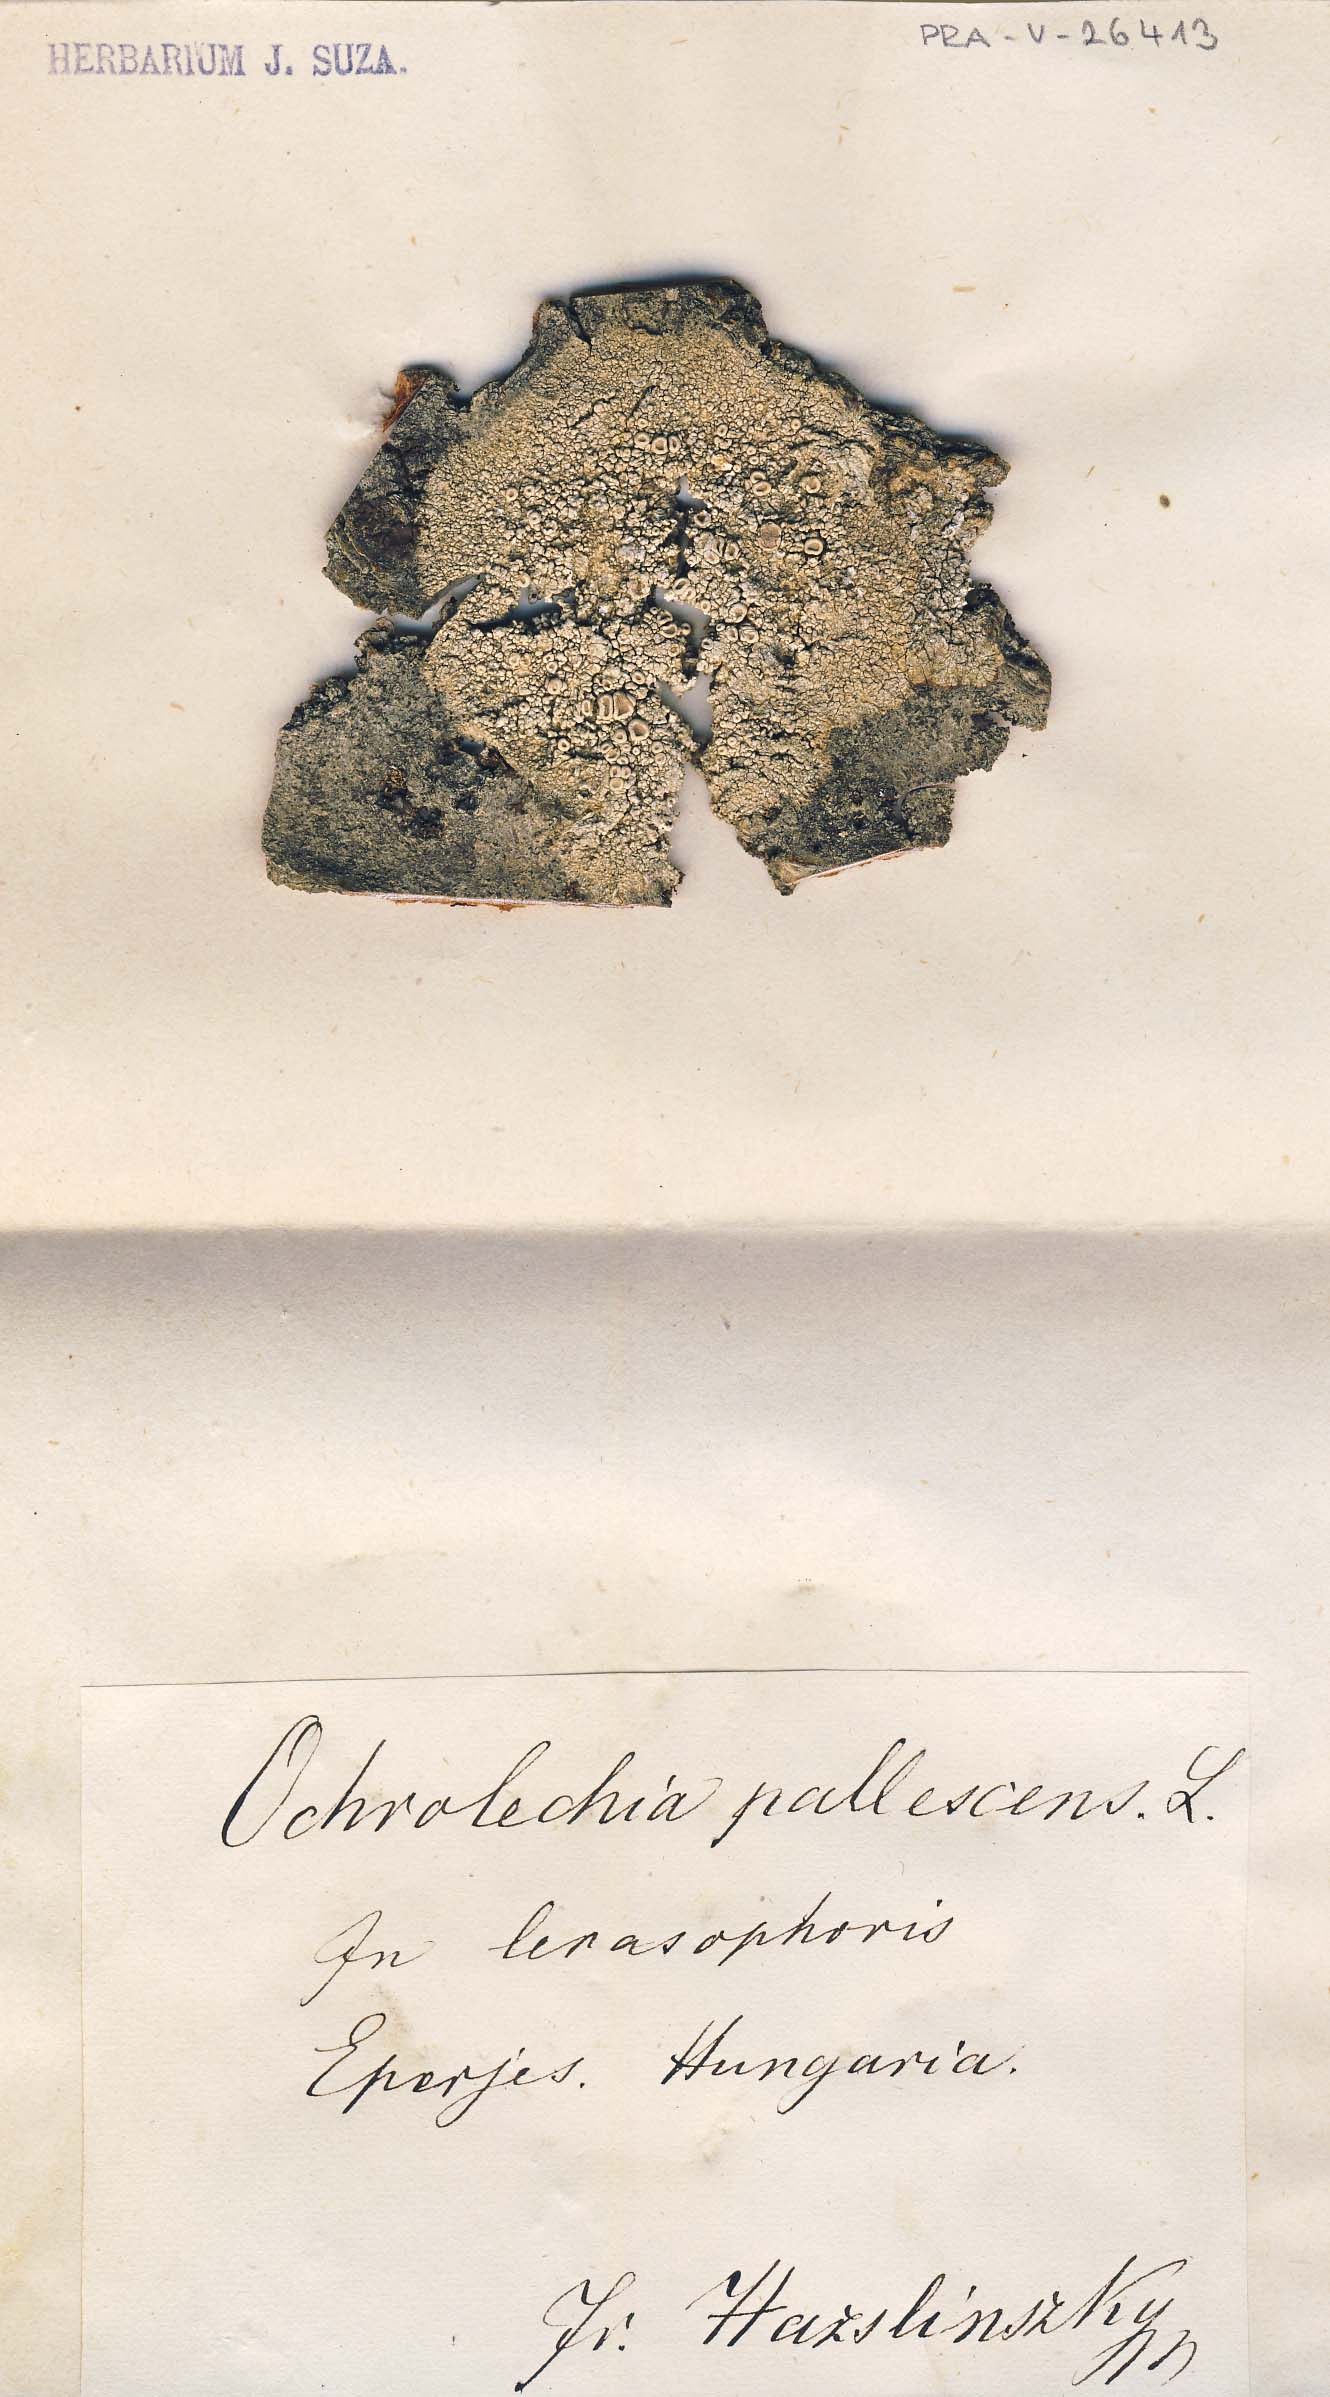 HERBARIUM J. SUZA.
PRA-V-26413
Ochrolechia pallescens. L.
In cerasophoris
Eperjes. Hungaria.
Fr. Hazslinszky